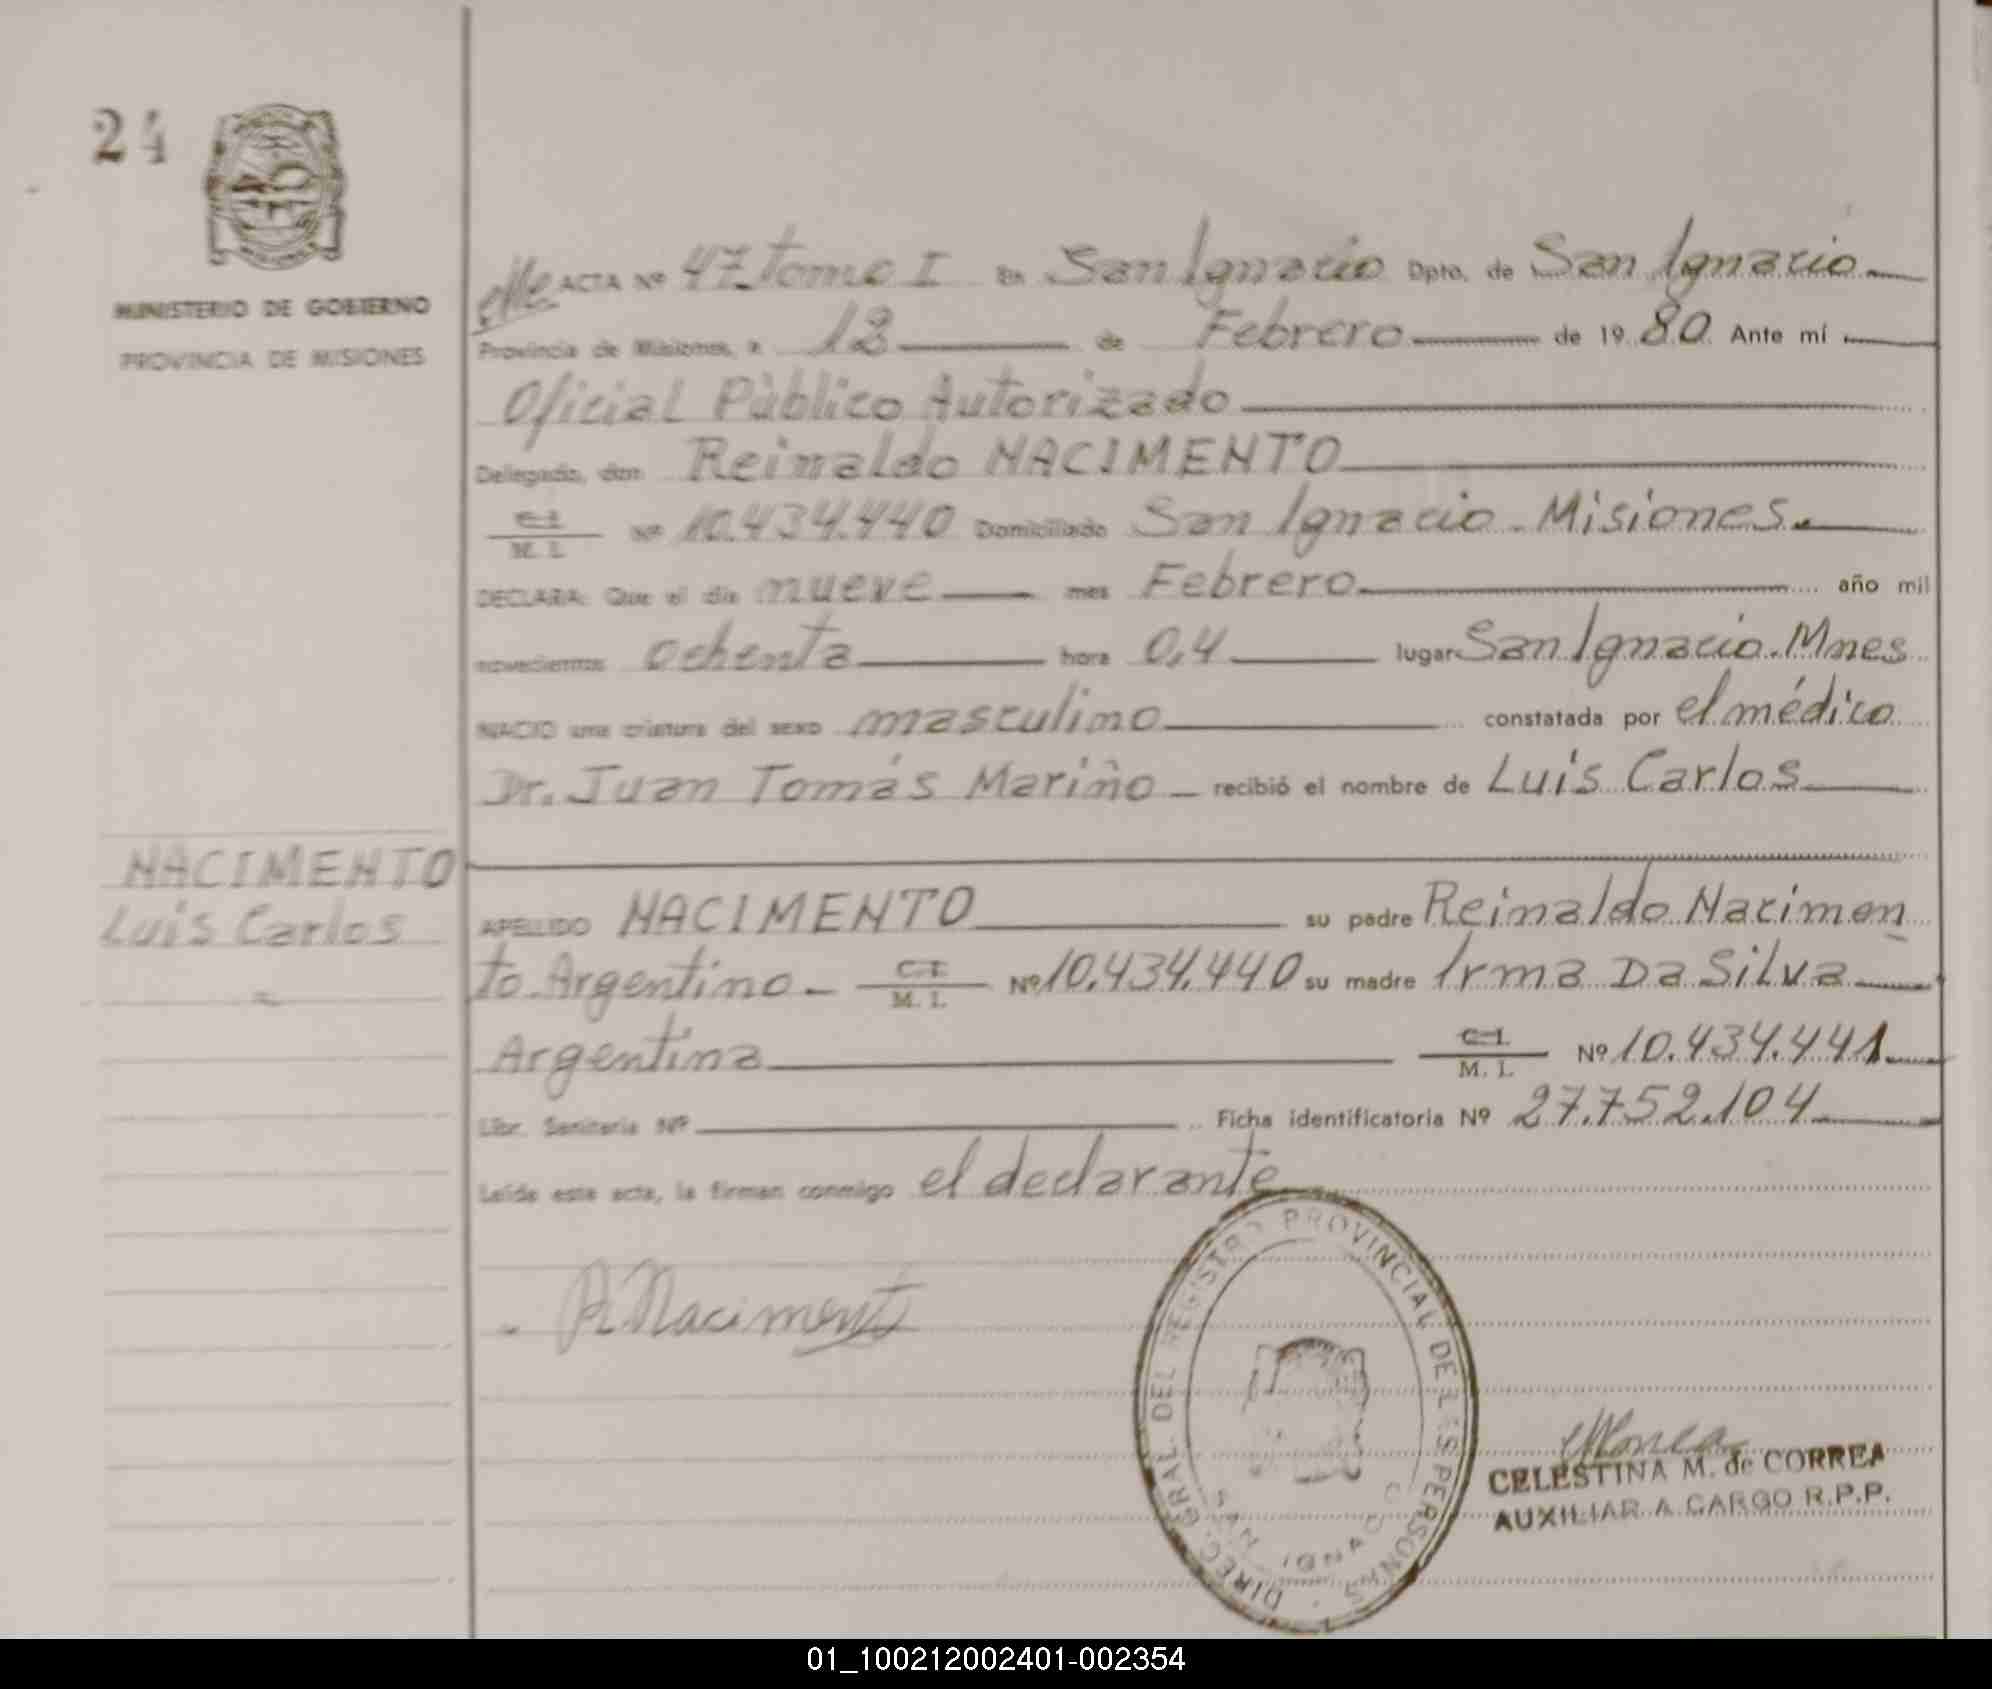 24
MINISTERIO DE GOBIERNO
PROVINCIA DE MISIONES
ACTA Nº 47 Tomo I En San Ignacio Dpto. de San Ignacio
Provincia de Misiones, a 12 de Febrero de 1980 Ante mí
Oficial Público Autorizado
Delegado, don Reinaldo NACIMENTO
C. I.
M. I. Nº 10.434.440 Domiciliado San Ignacio - Misiones.
DECLARA: Que el día nueve mes Febrero año mil
novecientos ochenta hora 0,4 lugar San Ignacio. Mnes
NACIO una criatura del sexo masculino constatada por el médico
Dr. Juan Tomás Mariño recibió el nombre de Luis Carlos
NACIMENTO
Luis Carlos
APELLIDO NACIMENTO su padre Reinaldo Nacimen
to Argentino - C. I.
M. I. Nº 10.434.440 su madre Irma Da Silva
Argentina C. I.
M. I. Nº 10.434.441
Libr. Sanitaria Nº Ficha identificatoria Nº 27.752.104
Leída esta acta, la firman conmigo el declarante
R Naciment
DIREC. GRAL. DEL REGISTRO PROVINCIAL DE LAS PERSONAS
SAN IGNACIO
CELESTINA M. de CORREA
AUXILIAR A CARGO R.P.P.
01_100212002401-002354